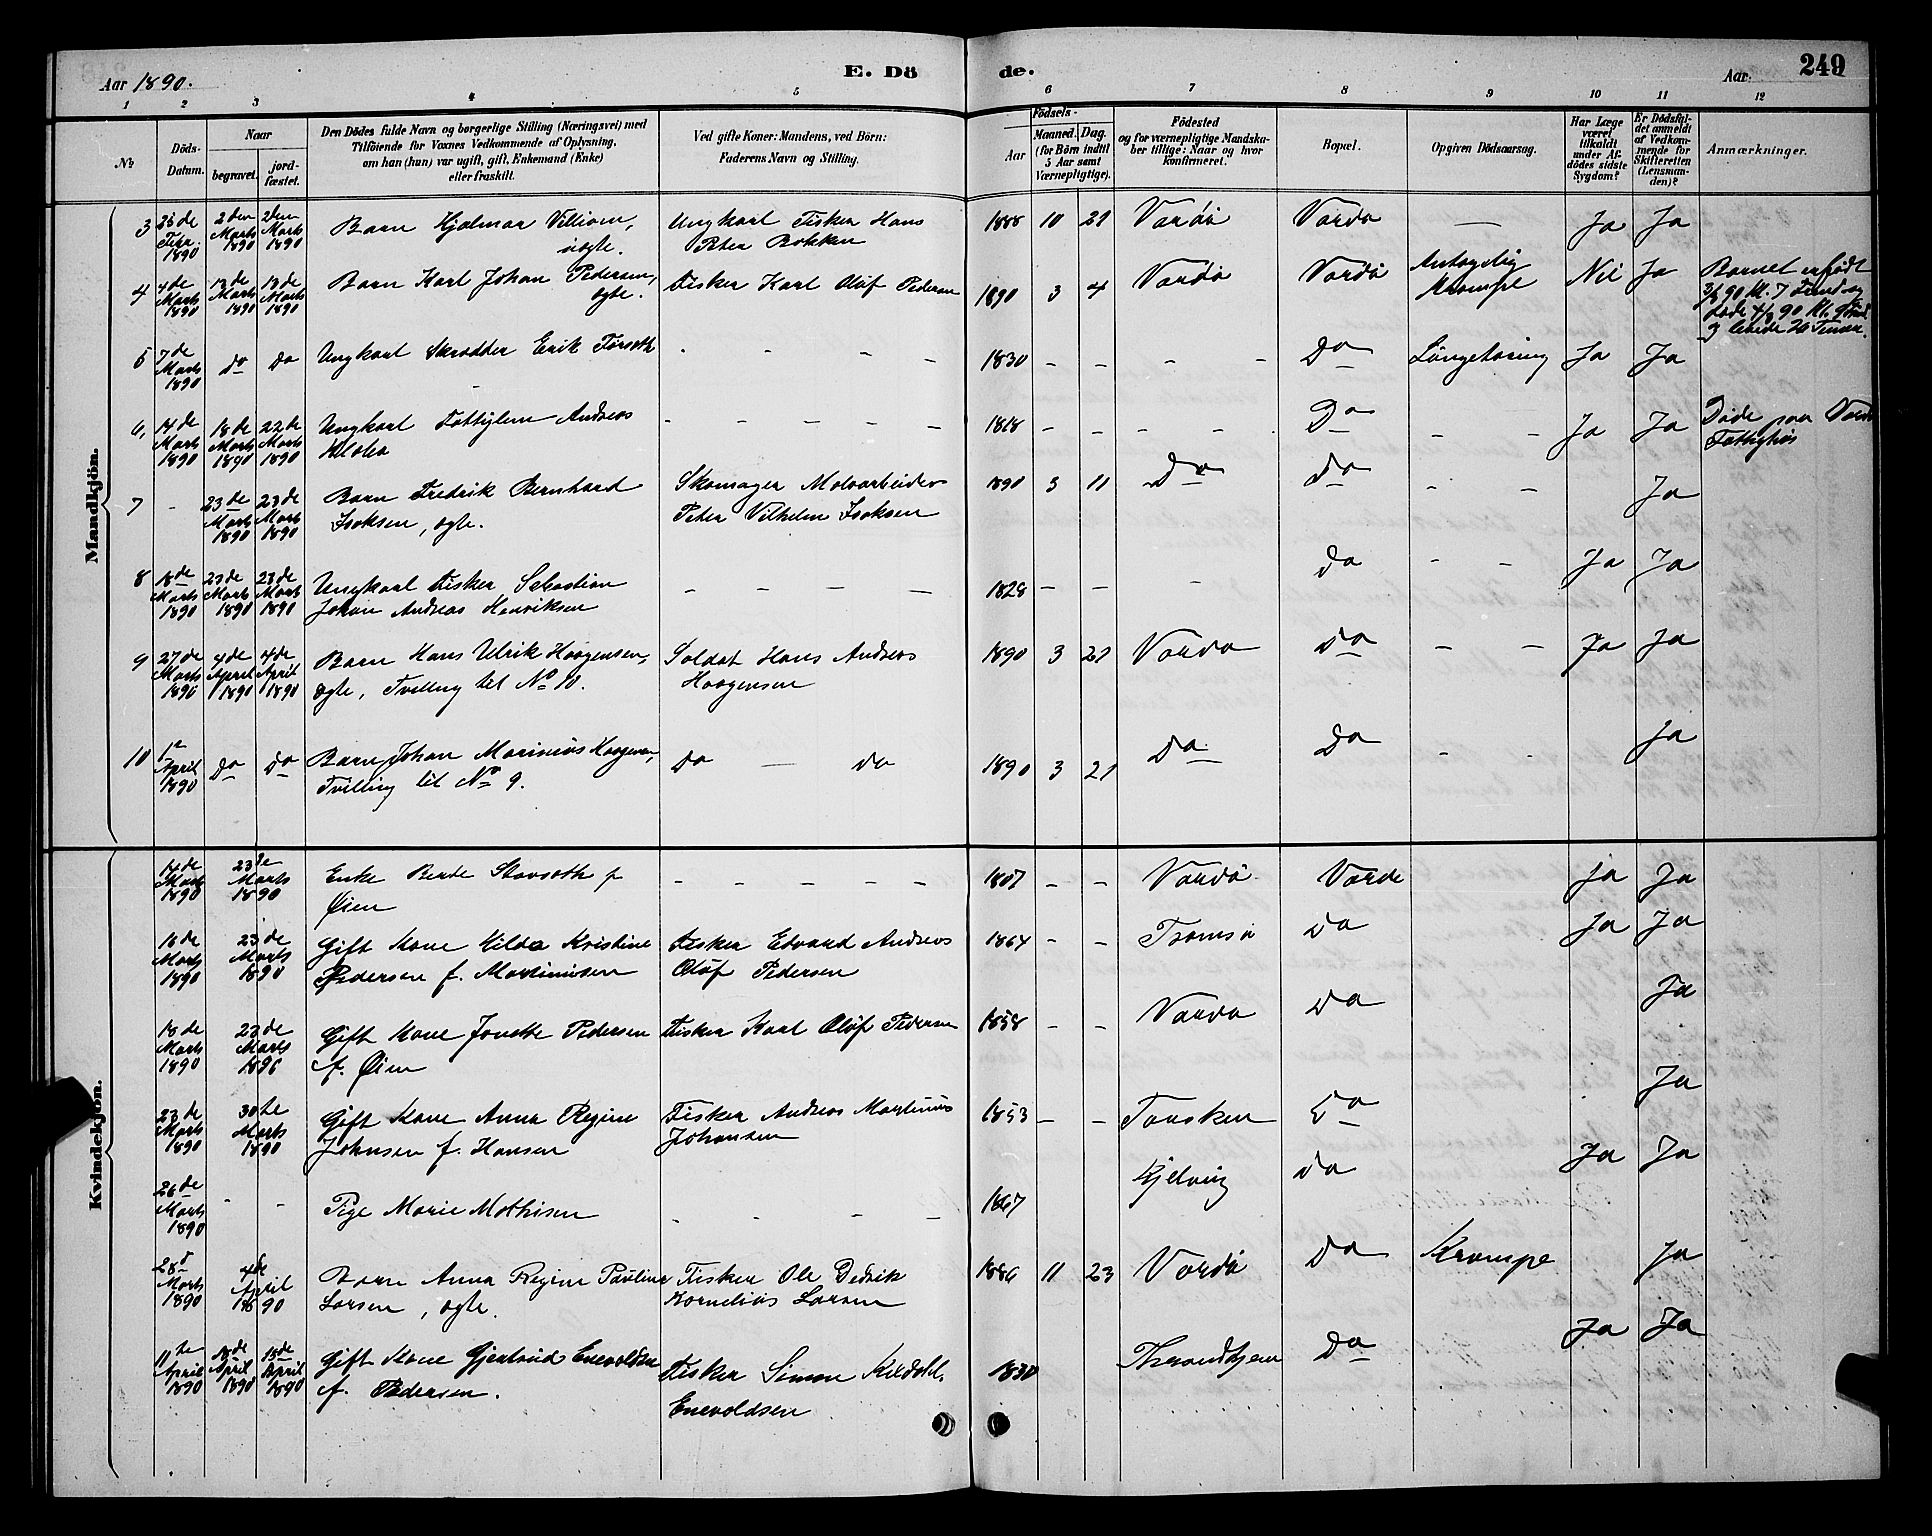 Aar 1890.
E. Döde.
Aar.
249
1 2 3 4 5 6 7 8 9 10 11 12
№
Döds-Datum.
Naar
begravet.
jord-fæstet.
Den Dödes fulde Navn og borgerlige Stilling (Næringsvei) med
Tilföiende for Voxnes Vedkommende af Oplysning,
om han (hun) var ugift, gift, Enkemand (Enke)
eller fraskilt.
Ved gifte Koner: Mandens, ved Börn:
Faderens Navn og Stilling.
Födsels-
Aar
Maaned. Dag.
(for Börn indtil
5 Aar samt
Værnepligtige).
Födested
og for værnepligtige Mandska-
ber tillige: Naar og hvor
konfirmeret.
Bopæl.
Opgiven Dödsaarsag.
Har Læge
været
tilkaldt
under Af-
dödes sidste
Sygdom?
Er Dödsfal-
det anmeldt
af Vedkom-
mende for
Skifteretten
(Lensman-
den)?
Anmærkninger.
Mandkjön.
3 26de Febr. 1890 2den Marts 1890 2den Marts 1890 Barn Hjalmar Villiam, uægte. Ungkarl Fisker Hans Peter Bokken 1888 10 21 Vardö Vardö — Ja Ja
4 4de Marts 1890 13de Marts 1890 13de Marts 1890 Barn Karl Johan Pedersen, ægte. Fisker Karl Oluf Pedersen 1890 3 4 Vardö Vardö Antagelig Krampe Nei Ja Barnet er født 3/3 90 Kl. 7 døde 4/3 90 Kl. levede Timer.
5 7de Marts 1890 Do Do Ungkarl Skrædder Erik - - - - 1830 - - - - Do Ja Ja
6, 14de Marts 1890 18de Marts 1890 22de Marts 1890 Ungkarl Fattiglem Andreas 1818 - - - - Do - - Ja Ja Døde paa Vardø Fattighus
7 - 23de Marts 1890 23de Marts 1890 Barn Fredrik Bernhard Isaksen, ægte. Skomager Moloarbeider Peter Vilhelm Isaksen 1890 3 11 Do Do - - Ja
8 18de Marts 1890 23de Marts 1890 23de Marts 1890 Ungkarl Fisker Sebastian Johan Andreas Henriksen - - - - 1828 - - - Do - - Ja Ja
9 27de Marts 1890 4de April 1890 4de April 1890 Barn Hans Ulrik Haagensen, ægte, Tvilling til No 10. Soldat Hans Andreas Haagensen 1890 3 21 Vardö Do - - Ja Ja
10 1ste April 1890 Do Do Barn Johan Marinius Haagensen, Tvilling til No 9. Do — Do 1890 3 21 Do Do - - Ja
Kvindekjön.
14de Marts 1890 23de Marts 1890 Enke Berte f. Øien - - - - - 1807 - - Vardö Vardø Ja Ja
16de Marts 1890 23de Marts 1890 Gift Kone Hilda Kristine Pedersen f. Martinusen Fisker Edvard Andreas Oluf Pedersen 1864 - - Tromsø Do Ja Ja
18de Marts 1890 23de Marts 1890 Gift Kone Jonette Pedersen f. Øien Fisker Karl Oluf Pedersen 1858 - - Vardø Do Ja
23de Marts 1890 30te Marts 1890 Gift Kone Anna Regine Johnsen f. Hansen Fisker Andreas Martinus Johansen 1853 - - Do Ja
26de Marts 1890 - - Pige Marie Mathisen - - - - 1867 Kjelvig Do Ja Ja
28de Marts 1890 4de April 1890 Barn Anna Regine Pauline Larsen, ægte. Fisker Ole Dedrik Kornelius Larsen 1886 11 23 Vardö Do Krampe Ja
11te April 1890 18de April 1890 18de April 1890 Gift Kone Gjertrud Enevoldsen f. Pedersen. Fisker Simon Enevoldsen 1830 Throndhjem Do Ja Ja